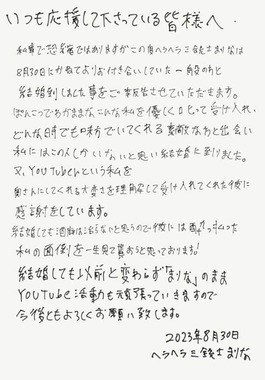 いつも応援して下さっている皆様へ
私事で恐縮ではありますがこの度ヘラヘラ三銃士まりなは
8月30日にかねてよりお付き合いしていた一般の方と
結婚致しました事をご報告させていただきます。
ぽんこつでわがままな、こんな私を優しく口説って受け入れ、
どんな時でも味方でいてくれる素敵な方と出会い
私にはこの人しかいないと思い結婚に至りました。
又、YouTuberという私を
奥さんにしてくれる大変さを理解して受け入れてくれた彼に
感謝をしています。
結婚しても酒癖は治らないと思うので彼には酔っ払った
私の面倒を一生見て貰おうと思っております!
結婚しても以前と変わらず「まりな」のまま
YouTube活動も頑張っていきますので
今後ともよろしくお願い致します。
2023年8月30日
ヘラヘラ三銃士まりな